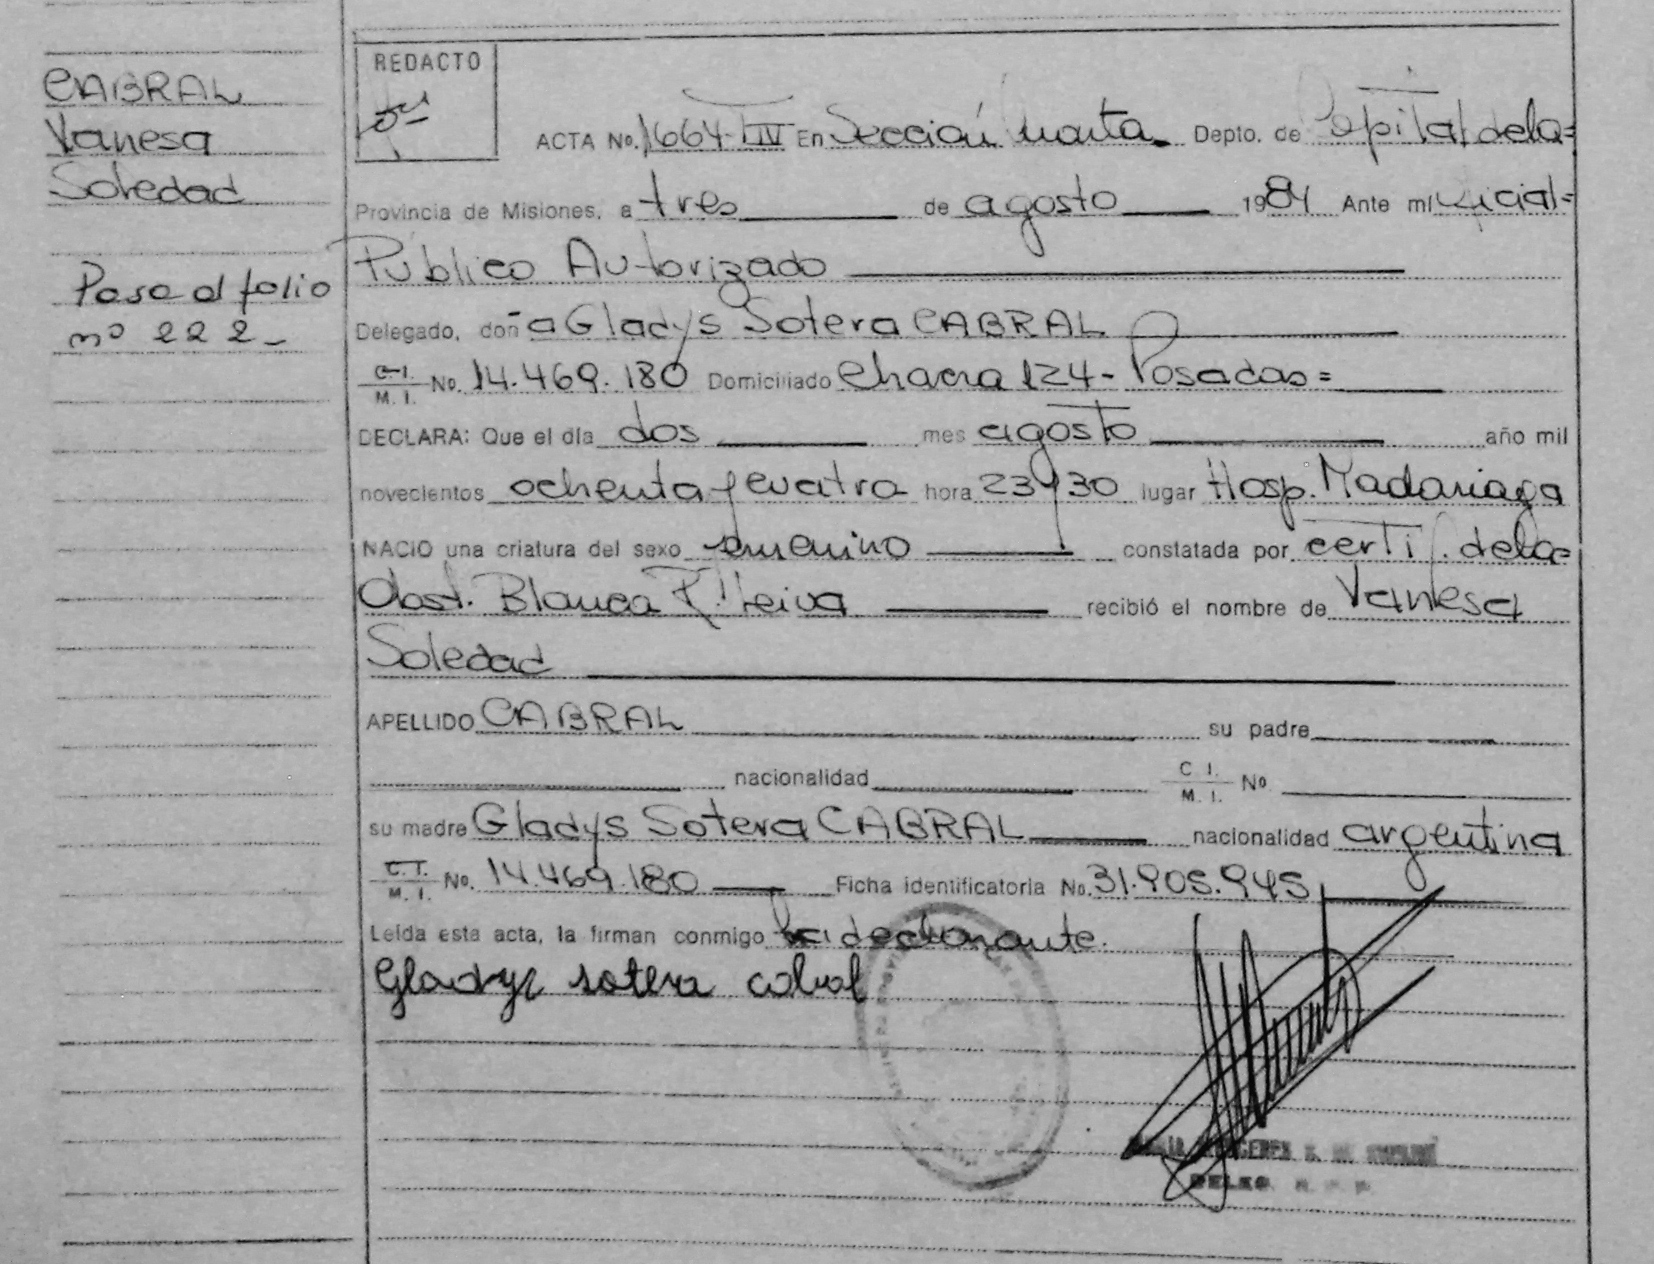 CABRAL
Vanesa
Soledad
Pasa al folio
nº 222-
REDACTO
ACTA No. 1664-T IV En Sección Cuarta. Depto. de Capital de la=
Provincia de Misiones, a tres de agosto 1984 Ante mi Oficial=
Público Autorizado
Delegado, doña Gladys Sotera CABRAL
C.I. M.I. No. 14.469.180 Domiciliado Chacra 124- Posadas=
DECLARA: Que el día dos mes agosto año mil
novecientos ochenta y cuatro hora 23 y 30 lugar Hosp. Madariaga
NACIO una criatura del sexo femenino constatada por certif. de la=
Obst. Blanca R. Leiva recibió el nombre de Vanesa
Soledad
APELLIDO CABRAL su padre
nacionalidad C.I. M.I. No.
su madre Gladys Sotera CABRAL nacionalidad argentina
C.I. M.I. No. 14.469.180 Ficha identificatoria No. 31.905.945
Leída esta acta, la firman conmigo la declarante.
Gladys sotera cabral